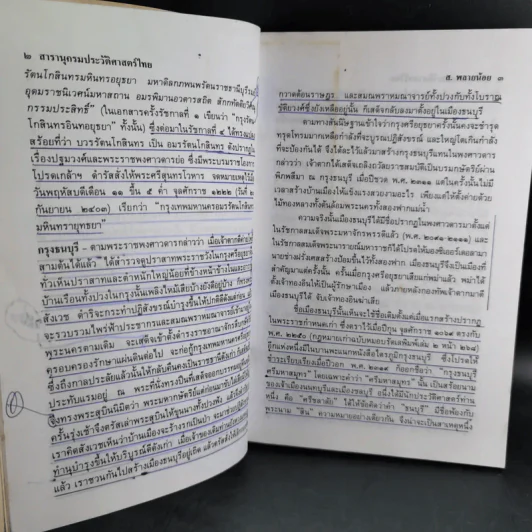 ๒ สารานุกรมประวัติศาสตร์ไทย
รัตนโกสินทรมหินทรอยุธยา มหาดิลกภพนพรัตนราชธานีบุรีรมย์
อุดมราชนิเวศน์มหาสถาน อมรพิมานอวตารสถิต สักกทัตติยวิศณุ
กรรมประสิทธิ์" (ในเอกสารครั้งรัชกาลที่ ๑ เขียนว่า "กรุงรัตน
โกสินทร์อินทอยุธยา" ทั้งนั้น) ซึ่งต่อมาในรัชกาลที่ ๔ ได้ทรงแปลง
สร้อยที่ว่า บวรรัตนโกสินทร เป็น อมรรัตนโกสินทร ดังปรากฏใน
เรื่องปฐมวงศ์และพระราชพงศาวดารย่อ ซึ่งมีพระบรมราชโองการ
โปรดเกล้าฯ ดำรัสสั่งให้พระศรีสุนทรโวหาร จดหมายเหตุไว้เมื่อ
วันพฤหัสบดีเดือน ๑๑ ขึ้น ๕ ค่ำ จุลศักราช ๑๒๒๒ (วันที่
กันยายน ๒๔๐๓) เรียกว่า "กรุงเทพมหานครอมรรัตนโกสินทร์
มหินทรายุทธยา"
กรุงธนบุรี - ตามพระราชพงศาวดารกล่าวว่า เมื่อเจ้าตากตีค่าย
สามต้นได้แล้ว ได้สำรวจดูปราสาทพระราชวังในกรุงศรีอยุธยา
ทั่วเห็นปราสาทและตำหนักใหญ่น้อยที่ข้างหน้าข้างใน
บ้านเรือนทั้งปวงในกรุงนั้นเพลิงไหม้เสียบ้างยังดีอยู่บ้าง ก็ทรง
สังเวช ดำริจะกระทำปฏิสังขรณ์บำรุงขึ้นให้ปกติดีดังแต่ก่อน
จะรวบรวมไพร่ฟ้าประชากรและสมณพราหมณาจารย์
พระนครตามเดิม จะเสด็จเข้าตั้งดำรงราชอาณาจักร
ครอบครองรักษาแผ่นดินต่อไป จะก่อกู้กรุงเทพมหานคร
ซึ่งถึงกาลประลัยแล้วนั้นให้กลับคืนคงเป็นราชธานีดังเก่า
ประทับแรมอยู่ ณ พระที่นั่งทรงปืนที่เสด็จออก
จึงทรงพระสุบินนิมิตว่า พระมหากษัตริย์แต่ก่อนมาขับไล่ไม่ให้อยู่
ครั้นรุ่งเช้าจึงตรัสเล่าพระสุบินให้ขุนนางทั้งปวงฟัง แล้ว
เราคิดสังเวชเห็นว่าบ้านเมืองจะร้างรกเป็นป่า จะมาช่วย
ทำนุบำรุงขึ้นให้บริบูรณ์ดีดังเก่า เมื่อเจ้าของเดิมท่านยังหวงแหนอยู่
แล้ว เราชวนกันไปสร้างเมืองธนบุรีอยู่เถิด แล้วตรัสให้เลิก
ส. พลายน้อย ๓
กวาดต้อนราษฎร และสมณพราหมณาจารย์ทั้งปวงกับทั้งโบราณ
ขัติยวงศ์ซึ่งยังเหลืออยู่นั้น ก็เสด็จกลับลงมาตั้งอยู่ในเมืองธนบุรี
ตามทางสันนิษฐานเข้าใจว่ากรุงศรีอยุธยาครั้งนั้นคงจะชำรุด
ทรุดโทรมมากเหลือกำลังที่จะบูรณปฏิสังขรณ์ และใหญ่โตเกินกำลัง
ที่จะป้องกันได้ จึงได้ละไว้แล้วมาสร้างกรุงธนบุรีแทนในพงศาวดาร
กล่าวว่า เจ้าตากได้เสด็จเถลิงถวัลยราชสมบัติเป็นบรมกษัตริย์ผ่าน
พิภพสีมา ณ กรุงธนบุรี เมื่อปีชวด พ.ศ. ๒๓๑๑ แต่ในครั้งนั้นไม่มี
เวลาสร้างบ้านเมืองให้แข็งแรงสวยงามอะไร เพียงแต่ให้ตั้งค่ายด้วย
ไม้ทองหลางทั้งต้นล้อมพระนครทั้งสองฟากแม่น้ำ
ความจริงเมืองธนบุรีได้มีชื่อปรากฏในพงศาวดารมาตั้งแต่
ในรัชกาลสมเด็จพระมหาจักรพรรดิแล้ว (พ.ศ. ๒๐๙๑-๒๑๑๑) และ
ในรัชกาลสมเด็จพระนารายณ์มหาราชก็ได้โปรดให้มองซิเออร์เดอลามา
นายช่างฝรั่งเศสสร้างป้อมขึ้นไว้ทั้งสองฝั่ง เมืองธนบุรีจึงเป็นเมืองที่
สำคัญมาแต่ครั้งนั้น ครั้นเมื่อกรุงศรีอยุธยาเสียแก่พม่าแล้ว พม่าได้
ตั้งเจ้าทองอินให้เป็นผู้รักษาเมือง แล้วภายหลังกองทัพเจ้าตากมาตี
เมืองธนบุรีได้ จับเจ้าทองอินฆ่าเสีย
ชื่อเมืองธนบุรีนั้นเห็นจะใช้ชื่อเดิมตั้งแต่เมื่อแรกสร้างปรากฏ
ในพระราชกำหนดเก่า ซึ่งตราไว้เมื่อปีกุน จุลศักราช ๑๐๖๙ ตรงกับ
พ.ศ. ๒๒๕๐ (กฎหมายเก่าฉบับหมอบรัดเลพิมพ์เล่ม ๒ หน้า
อีกแห่งหนึ่งมีในบานพแนกหนังสือไตรภูมิกรุงธนบุรี ซึ่งโปรดให้
ข้าราชเรียบเรียงเมื่อปีวอก พ.ศ. ๒๓๑๙ ก็ออกชื่อว่า "กรุงธนบุรี
ศรีมหาสมุทร" โดยเฉพาะคำว่า "ศรีมหาสมุทร" นั้น เป็นสร้อยนาม
ของเจ้าเมืองนนทบุรีและเมืองชลบุรี อนึ่งได้มีนักประวัติศาสตร์ท่าน
หนึ่ง คือ "ตรีชลาลัย" ได้ให้ข้อคิดว่าคำ "ธนบุรี" มีชื่อพ้องกับ
พระนาม "สิน" ความหมายอย่างเดียวกัน จึงน่าจะเป็นสาเหตุหนึ่ง